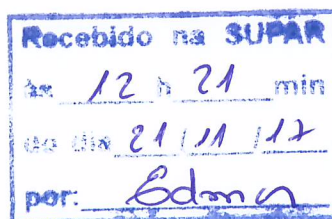 Recebido na SUPAR
às 12 h 21 min
do dia 21/11/17
por: Edmar